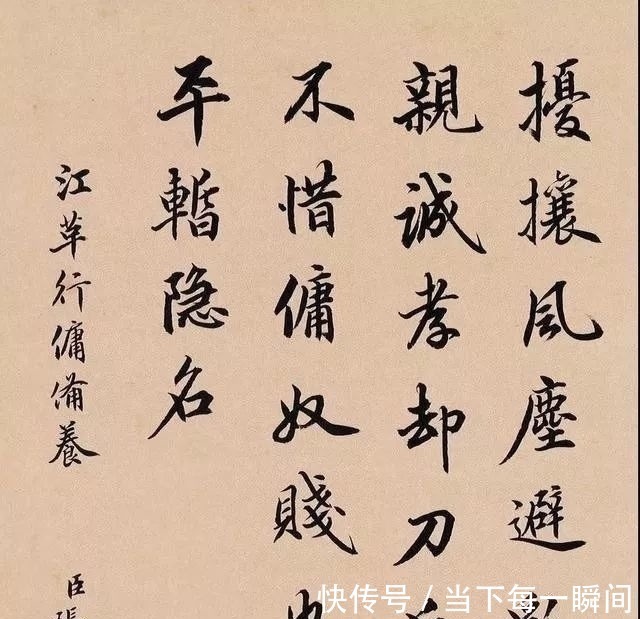 擾攘風塵避
親誠孝却刀
不惜傭奴賤
平暫隐名
江革行傭備養
臣張
快传号 / 当下每一瞬间